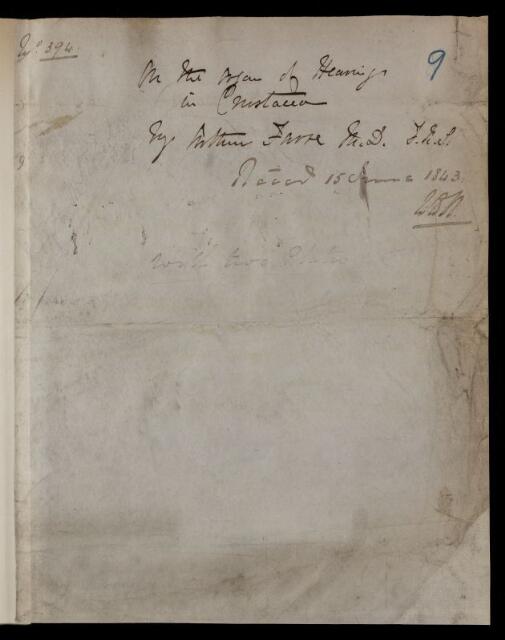 No. 394.
9
On the organ of Hearing
in Crustacea
By Arthur Farre M.D. F.R.S.
Recd 15 June 1843.
with two Plates